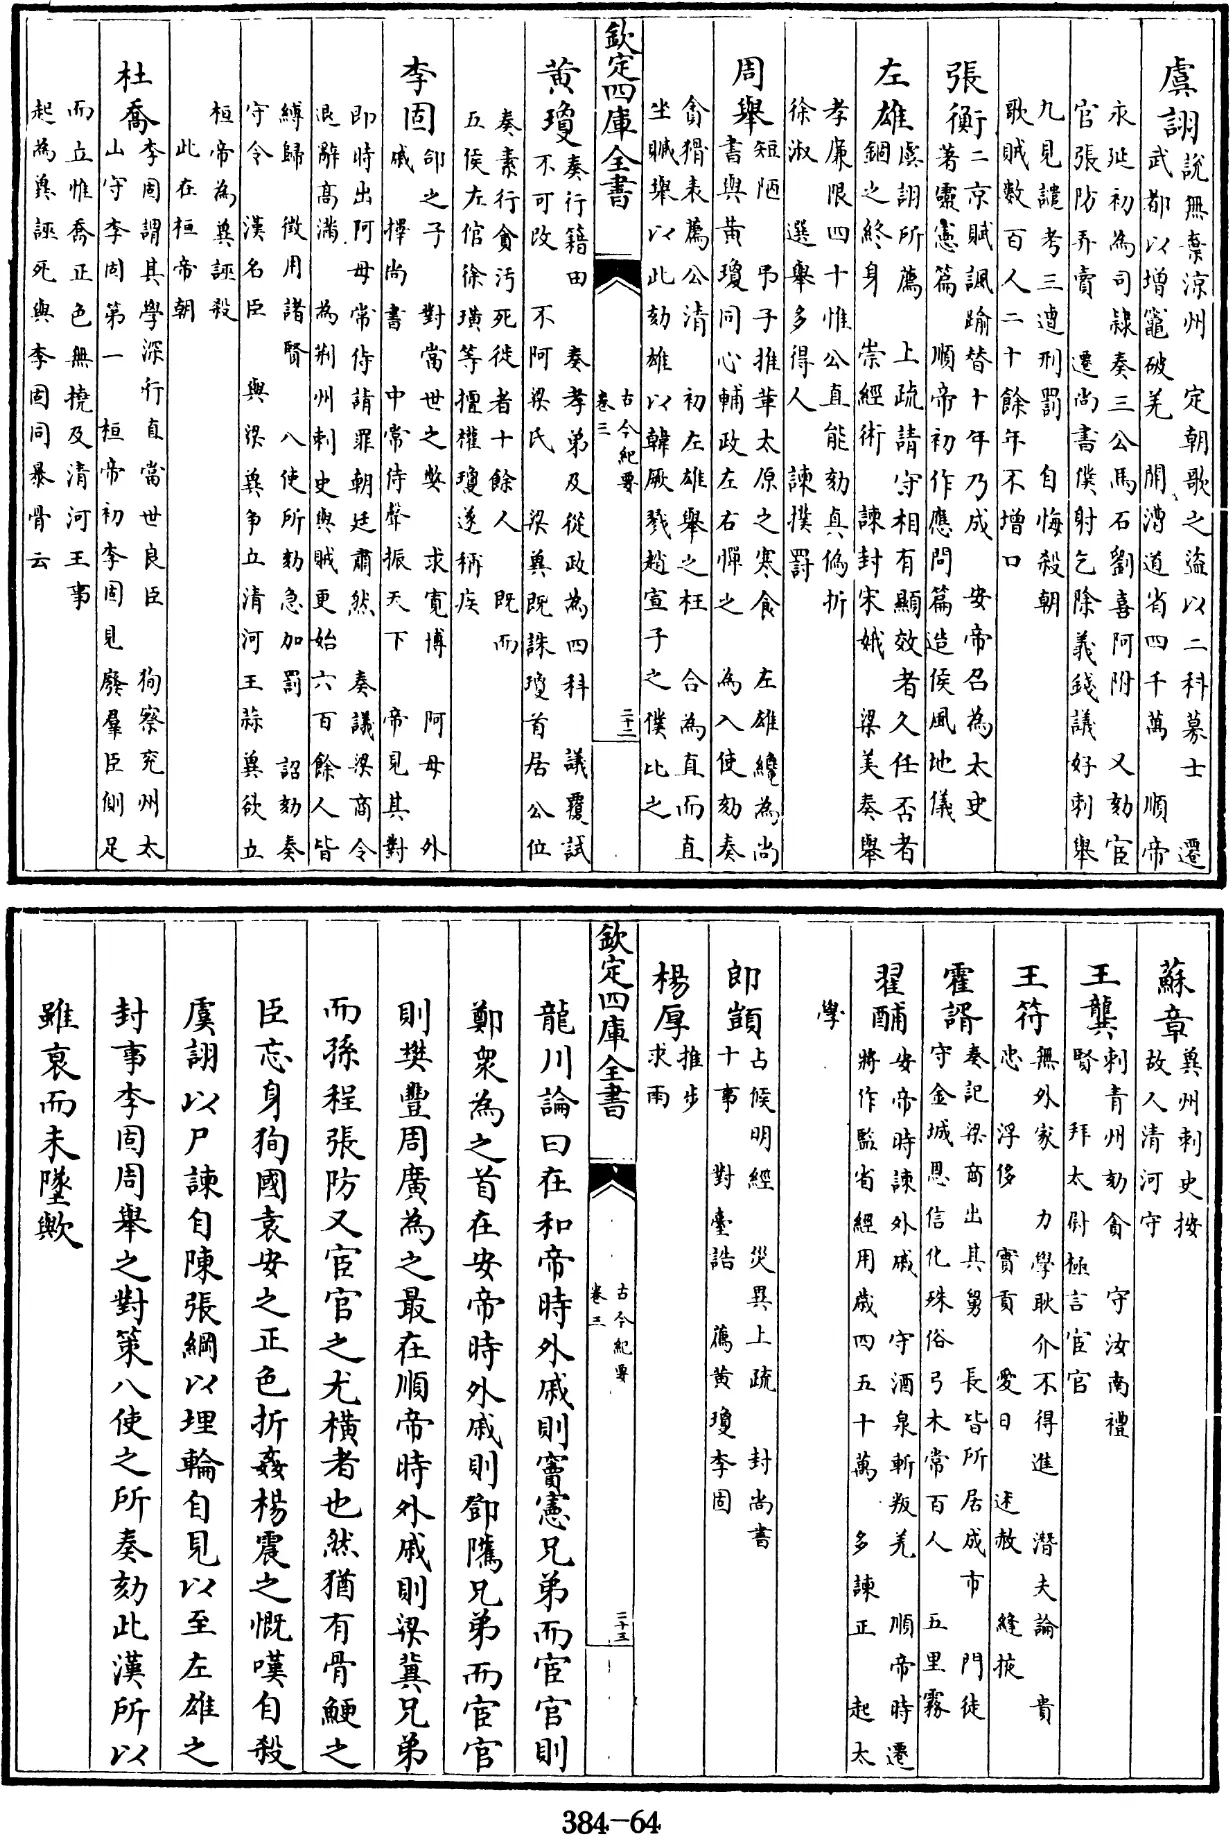 虞詡說無棄涼州　定朝歌之盜以二科募士　遷
武都以增竈破羌　開漕道省四千萬　順帝
永延初為司隸奏三公馬石劉喜阿附　又劾宦
官張防弄賣　遷尚書僕射乞除義錢議好刺舉
九見譴考三遭刑罰　自悔殺朝
歌賊數百人二十餘年不增口
張衡二京賦諷踰替十年乃成　安帝召為太史
著靈憲篇　順帝初作應問篇造侯風地儀
左雄虞詡所薦　上疏請守相有顯效者久任否者
錮之終身　崇經術　諫封宋娥　梁美奏舉
孝廉限四十惟公直能劾真偽折
徐淑　選舉多得人　諫撲罰
周舉短陋　弔子推革太原之寒食　左雄纔為尚
書與黃瓊同心輔政左右憚之　為入使劾奏
貪猾表薦公清　初左雄舉之枉　合為直而直
坐贓舉以此劾雄以韓厥戮趙宣子之僕比之
欽定四庫全書
古今紀要
卷三
二十二
黃瓊奏行籍田　奏孝弟及從政為四科　議覆試
不可改　不阿梁氏　梁冀既誅瓊首居公位
奏素行貪污死徙者十餘人　既而
五侯左倌徐璜等擅權瓊遂稱疾
李固郃之子　對當世之弊　求寬博　阿母　外
戚　擇尚書　中常侍聲振天下　帝見其對
即時出阿母常侍請罪朝廷肅然　奏議梁商令
退辭高滿　為荆州刺史與賊更始六百餘人皆
縛歸　徵用諸賢　八使所劾急加罰　詔劾奏
守令　漢名臣　與梁冀争立清河王蒜冀欲立
桓帝為冀誣殺
此在桓帝朝
杜喬李固謂其學深行直當世良臣　狥察兖州太
山守李固第一　桓帝初李固見廢羣臣側足
而立惟喬正色無撓及清河王事
起為冀誣死與李固同暴骨云
蘇章冀州刺史按
故人清河守
王龔刺青州劾貪　守汝南禮
賢　拜太尉極言宦官
王符無外家　力學耿介不得進　潛夫論　貴
忠　浮侈　實貢　愛日　述赦　縫掖
霍諝奏記梁商出其舅　長皆所居成市　門徒
守金城恩信化殊俗　弓木常百人　五里霧
翟酺安帝時諫外戚　守酒泉斬叛羌　順帝時遷
將作監省經用歲四五十萬　多諫正　起太
學
郎顗占候明經　災異上疏　封尚書
十事　對臺詰　薦黃瓊李固
楊厚推步
求雨
欽定四庫全書
古今紀要
卷三
二十三
龍川論曰在和帝時外戚則竇憲兄弟而宦官則
鄭衆為之首在安帝時外戚則鄧隲兄弟而宦官
則樊豐周廣為之最在順帝時外戚則梁冀兄弟
而孫程張防又宦官之尤橫者也然猶有骨鯁之
臣忘身狥國袁安之正色折姦楊震之慨嘆自殺
虞詡以尸諫自陳張綱以埋輪自見以至左雄之
封事李固周舉之對策八使之所奏劾此漢所以
雖衰而未墜歟
384-64